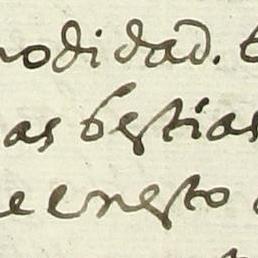 modidad.
as bestias
e en esto